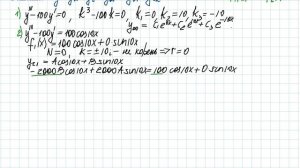 1) y''' - 100y' = 0, k³ - 100k = 0, k₁ = 0, k₂ = 10, k₃ = -10
y₀₀ = C₁e⁰ˣ + C₂e¹⁰ˣ + C₃e⁻¹⁰ˣ
2) y''' - 100y' = 100cos10x
f₁(x) = 100cos10x + 0sin10x
N=0, k = ±10i - не корень => r=0
yч₁ = Acos10x + Bsin10x
-2000Bcos10x + 2000Asin10x = 100cos10x + 0sin10x